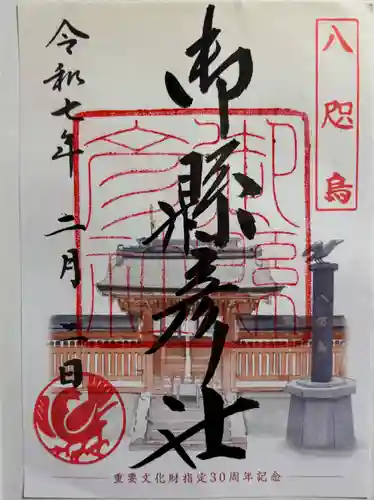 八咫烏
御縣彦社
御縣
彦社
令和七年二月一日
重要文化財指定30周年記念